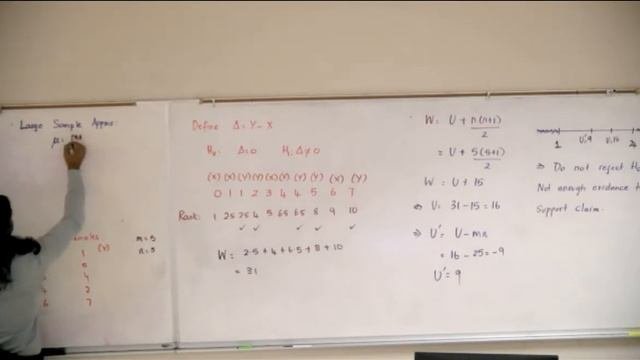 Large Sample Approx:
μ =
(Y)
m = 5
n = 5
1
0
4
2
7
Define Δ = Y - X
H₀: Δ=0 H₁: Δ≠0
(X) (X) (Y) (Y) (X) (X) (Y) (Y) (X) (Y)
0 1 1 2 3 4 4 5 6 7
Rank: 1 2.5 2.5 4 5 6.5 6.5 8 9 10
✓ ✓ ✓ ✓ ✓
W = 2.5 + 4 + 6.5 + 8 + 10
= 31
W = U + n(n+1)/2
= U + 5(5+1)/2
W = U + 15
⇒ U = 31 - 15 = 16
⇒ U' = U - mn
= 16 - 25 = -9
U' = 9
1 U'=9 U=16
⇒ Do not reject H₀
Not enough evidence
Support claim.